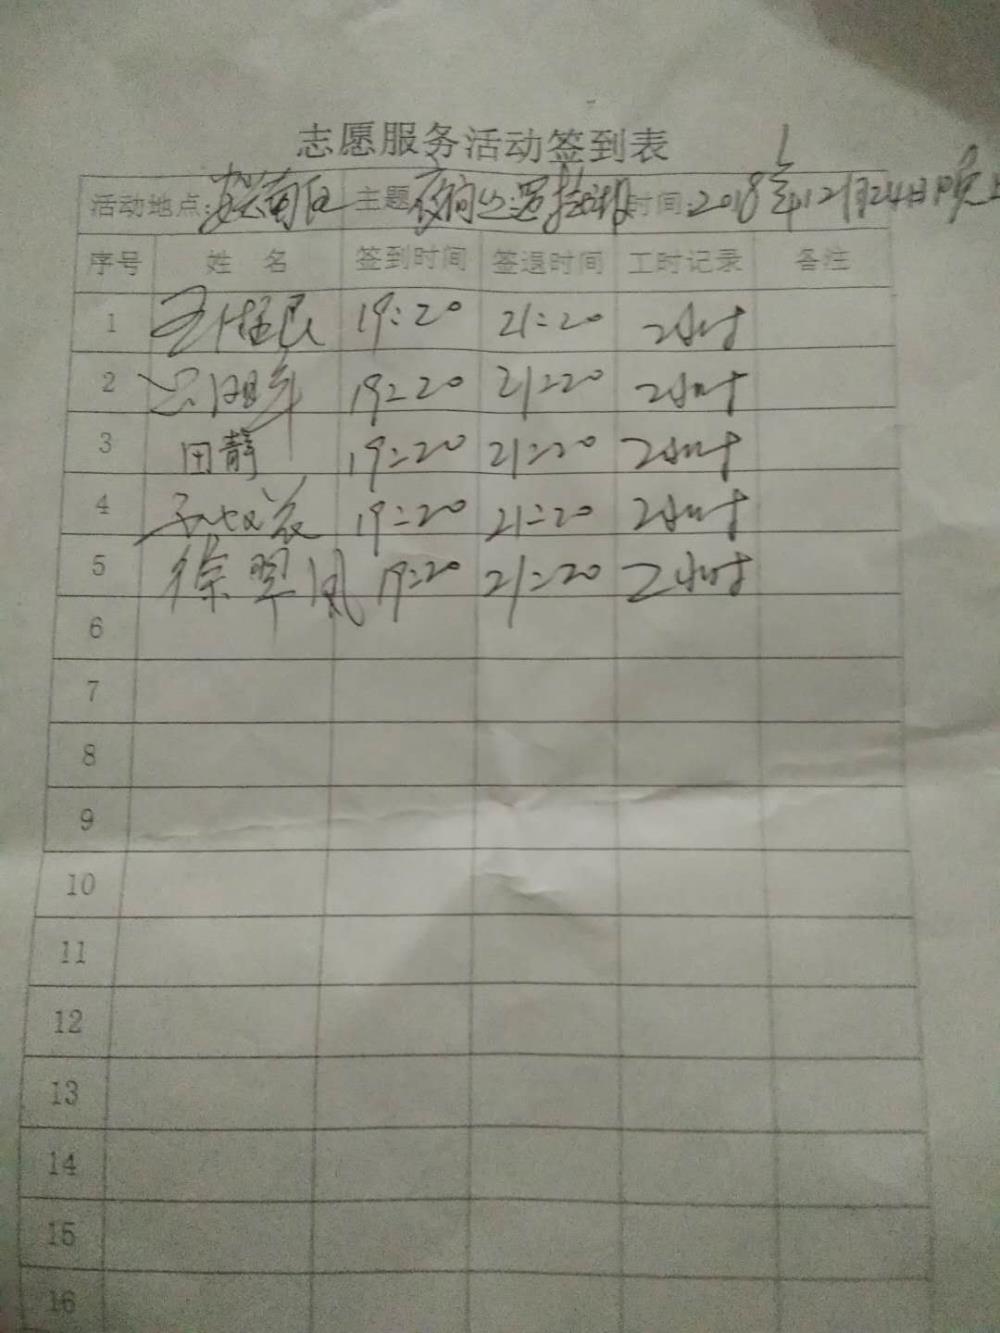 志愿服务活动签到表
活动地点: 主题 夜间巡逻 时间: 2018年12月24日晚上
序号 姓 名 签到时间 签退时间 工时记录 备注
1 19:20 21:20 2小时
2 19:20 21:20 2小时
3 田静 19:20 21:20 2小时
4 19:20 21:20 2小时
5 徐翠凤 19:20 21:20 2小时
6
7
8
9
10
11
12
13
14
15
16